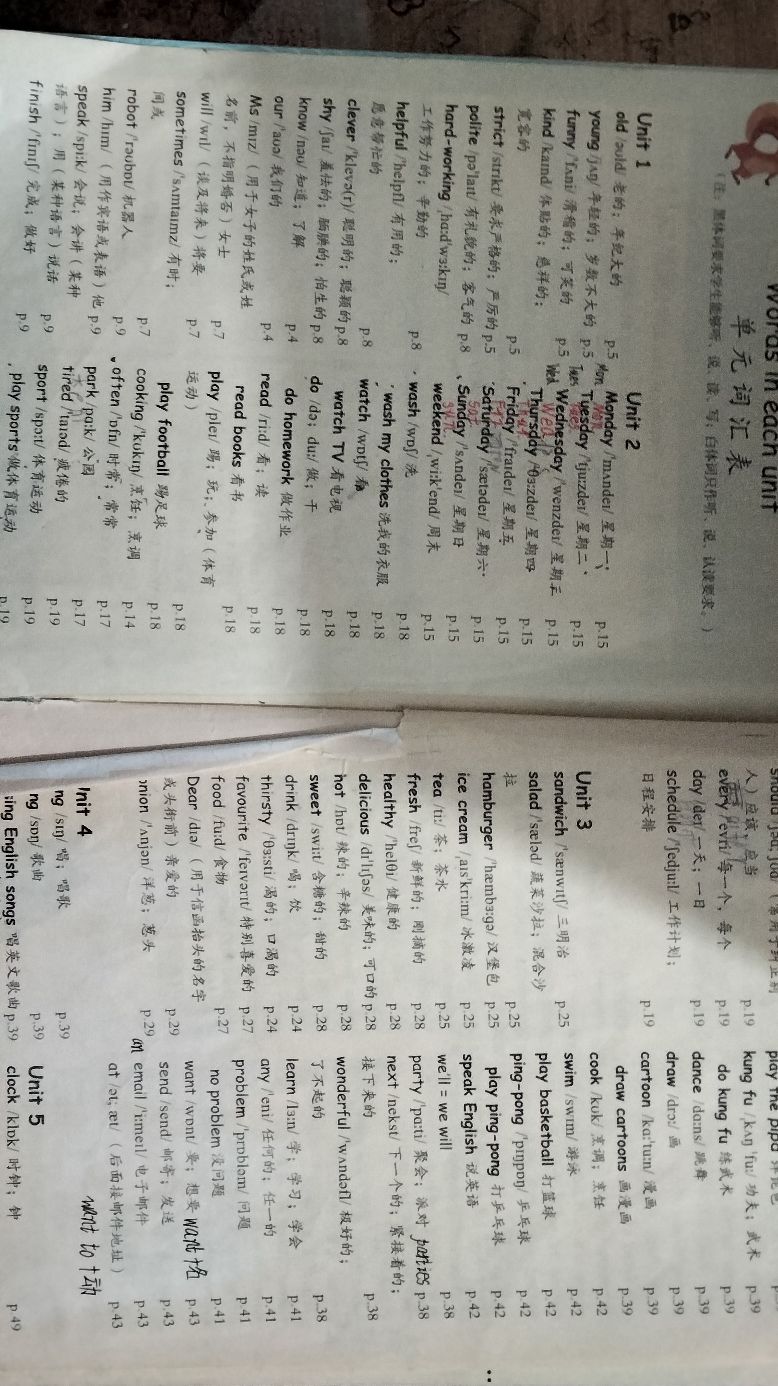 words in each unit
单元词汇表
(注：黑体词要求学生能够听、说、读、写；白体词只作听、说、认读要求。)
Unit 1
old /əʊld/ 老的；年纪大的 p.5
young /jʌŋ/ 年轻的；岁数不大的 p.5
funny /'fʌni/ 滑稽的；可笑的 p.5
kind /kaɪnd/ 体贴的；慈祥的；
宽容的 p.5
strict /strɪkt/ 要求严格的；严厉的 p.5
polite /pə'laɪt/ 有礼貌的；客气的 p.8
hard-working /ˌhɑːd'wɜːkɪŋ/
工作努力的；辛勤的 p.8
helpful /'helpfl/ 有用的；
愿意帮忙的 p.8
clever /'klevə(r)/ 聪明的；聪颖的 p.8
shy /ʃaɪ/ 羞怯的；腼腆的；怕生的 p.8
know /nəʊ/ 知道；了解 p.4
our /'aʊə/ 我们的 p.4
Ms /mɪz/ （用于女子的姓氏或姓
名前，不指明婚否）女士 p.7
will /wɪl/ （谈及将来）将要 p.7
sometimes /'sʌmtaɪmz/ 有时；
间或 p.7
robot /'rəʊbɒt/ 机器人 p.9
him /hɪm/ （用作宾语或表语）他 p.9
speak /spiːk/ 会说；会讲（某种
语言）；用（某种语言）说话 p.9
finish /'fɪnɪʃ/ 完成；做好 p.9
Unit 2
Mon
Monday /'mʌndeɪ/ 星期一 p.15
Tues
Tuesday /'tjuːzdeɪ/ 星期二 p.15
Wed
Wednesday /'wenzdeɪ/ 星期三 p.15
Thursday /'θɜːzdeɪ/ 星期四 p.15
Friday /'fraɪdeɪ/ 星期五 p.15
Saturday /'sætədeɪ/ 星期六 p.15
Sunday /'sʌndeɪ/ 星期日 p.15
weekend /ˌwiːk'end/ 周末 p.15
wash /wɒʃ/ 洗 p.18
wash my clothes 洗我的衣服 p.18
watch /wɒtʃ/ 看 p.18
watch TV 看电视 p.18
do /də; duː/ 做；干 p.18
do homework 做作业 p.18
read /riːd/ 看；读 p.18
read books 看书 p.18
play /pleɪ/ 踢；玩；参加（体育
运动） p.18
play football 踢足球 p.18
cooking /'kʊkɪŋ/ 烹饪；烹调 p.14
often /'ɒfn/ 时常；常常 p.17
park /pɑːk/ 公园 p.17
tired /'taɪəd/ 疲倦的 p.19
sport /spɔːt/ 体育运动 p.19
play sports 做体育运动 p.19
人）应该、应当 p.19
every /'evri/ 每一个，每个 p.19
day /deɪ/ 一天；一日 p.19
schedule /'ʃedjuːl/ 工作计划；
日程安排 p.19
Unit 3
sandwich /'sænwɪtʃ/ 三明治 p.25
salad /'sæləd/ 蔬菜沙拉；混合沙
拉 p.25
hamburger /'hæmbɜːgə/ 汉堡包 p.25
ice cream /ˌaɪs'kriːm/ 冰激凌 p.25
tea /tiː/ 茶；茶水 p.25
fresh /freʃ/ 新鲜的；刚摘的 p.28
healthy /'helθi/ 健康的 p.28
delicious /dɪ'lɪʃəs/ 美味的；可口的 p.28
hot /hɒt/ 辣的；辛辣的 p.28
sweet /swiːt/ 含糖的；甜的 p.28
drink /drɪŋk/ 喝；饮 p.24
thirsty /'θɜːsti/ 渴的；口渴的 p.24
favourite /'feɪvərɪt/ 特别喜爱的 p.27
food /fuːd/ 食物 p.27
Dear /dɪə/ （用于信函抬头的名字
或头衔前）亲爱的 p.29
onion /'ʌnjən/ 洋葱；葱头 p.29
Unit 4
ng /sɪŋ/ 唱；唱歌 p.39
ng /sɒŋ/ 歌曲 p.39
sing English songs 唱英文歌曲 p.39
play the pipa
kung fu /ˌkʌŋ 'fuː/ 功夫；武术 p.39
do kung fu 练武术 p.39
dance /dɑːns/ 跳舞 p.39
draw /drɔː/ 画 p.39
cartoon /kɑː'tuːn/ 漫画 p.39
draw cartoons 画漫画 p.39
cook /kʊk/ 烹调；烹饪 p.42
swim /swɪm/ 游泳 p.42
play basketball 打篮球 p.42
ping-pong /'pɪŋpɒŋ/ 乒乓球 p.42
play ping-pong 打乒乓球 p.42
speak English 说英语 p.42
we'll = we will p.38
party /'pɑːti/ 聚会；派对 parties p.38
next /nekst/ 下一个的；紧接着的；
接下来的 p.38
wonderful /'wʌndəfl/ 极好的；
了不起的 p.38
learn /lɜːn/ 学；学习；学会 p.41
any /'eni/ 任何的；任一的 p.41
problem /'prɒbləm/ 问题 p.41
no problem 没问题 p.41
want /wɒnt/ 要；想要 want+名 p.43
send /send/ 邮寄；发送 p.43
an email /'iːmeɪl/ 电子邮件 p.43
at /ət; æt/ （后面接邮件地址） p.43
want to +动
Unit 5
clock /klɒk/ 时钟；钟 p.49